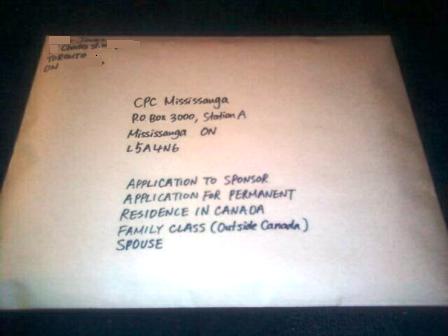 TORONTO
ON
CPC Mississauga
P.O Box 3000, Station A
Mississauga ON
L5A4N6
APPLICATION TO SPONSOR
APPLICATION FOR PERMANENT
RESIDENCE IN CANADA
FAMILY CLASS (Outside Canada)
SPOUSE